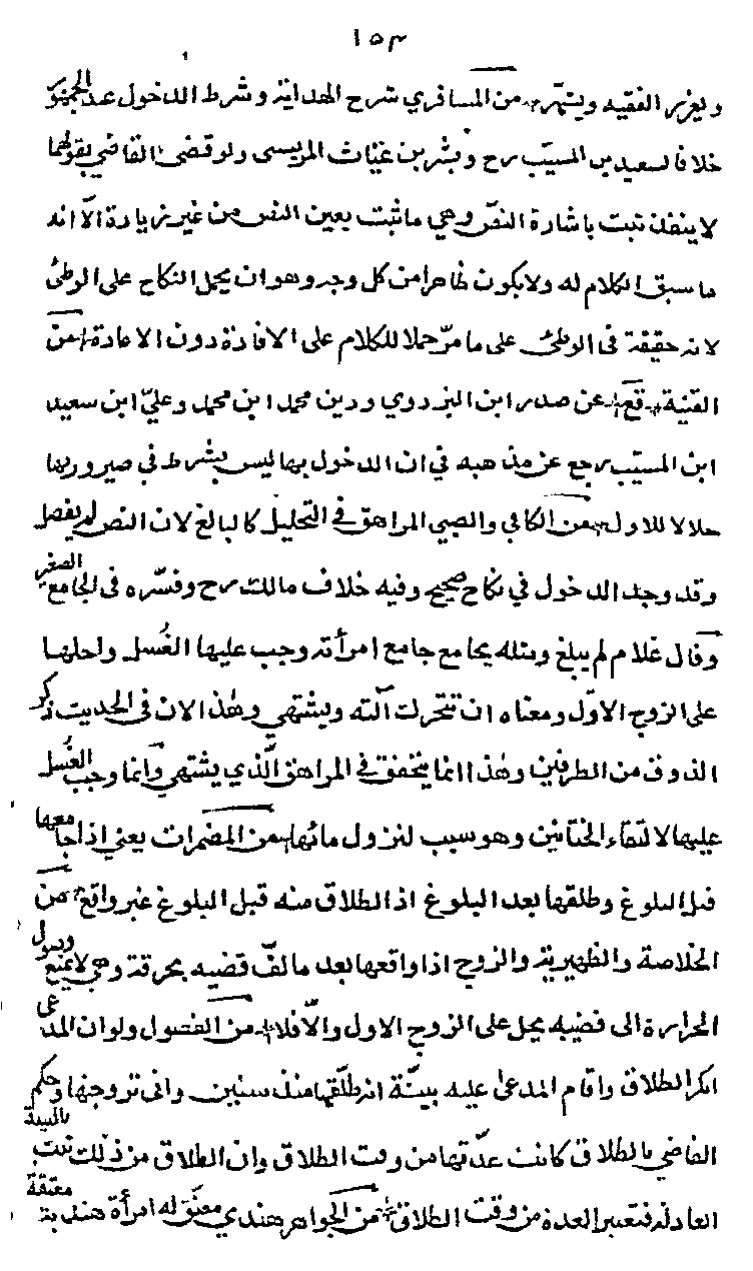 ١٥٣
ويعزر الفقيه ويشهر من المسافري شرح الهداية وشرط الدخول عند الجمهور
خلافا لسعيد بن المسيّب رح وبشر بن غياث المريسى ولو قضى القاضي بقولهما
لا ينفذ ثبت باشارة النصّ وهي ما ثبت بعين النص من غير زيادة الّا انه
ما سبق الكلام له ولا يكون ظاهرا من كل وجه وهو ان يحمل النكاح على الوطئ
لانه حقيقة فى الوطئ على ما مرّ حملا للكلام على الافادة دون الاعادة من
القنية قع عن صدر ابن البزدوي ودين محمد ابن محمد وعليّ ابن سعيد
ابن المسيّب رجع عن مذهبه في ان الدخول بها ليس بشرط في صيرورتها
حلالا للاول من الكافي والصبي المراهق في التحليل كالبالغ لان النص لم يفصل
وقد وجد الدخول في نكاح صحيح وفيه خلاف مالك رح وفسّره فى الجامع الصغير
وقال غلام لم يبلغ ومثله يجامع جامع امرأته وجب عليها الغُسل واحلها
على الزوج الاوّل ومعناه ان تتحرك آلته ويشتهي وهذا لان فى الحديث ذكر
الذوق من الطرفين وهذا انما يتحقق في المراهق الّذي يشتهي وانما وجب الغُسل
عليها لالتقاء الختانين وهو سبب لنزول مائها من المضمرات يعني اذا جامعها
قبل البلوغ وطلقها بعد البلوغ اذ الطلاق منه قبل البلوغ غير واقع من
الخلاصة والظهيرية والزوج اذا واقعها بعد ما لفّ قضيبه بخرقة وهي لا يمنع وصول
الحرارة الى قضيبه يحل على الزوج الاول والّا فلا من الفصول ولو ان المدعى
انكر الطلاق واقام المدعى عليه بيّنة انه طلّقها منذ سنين وانى تزوجتها وحكم
القاضي بالطلاق كانت عدّتها من وقت الطلاق وان الطلاق من ذلك ثبت بالبينة
العادلة فتعتبر العدة من وقت الطلاق من الجواهر هندي معتق له امرأة هندية معتقة